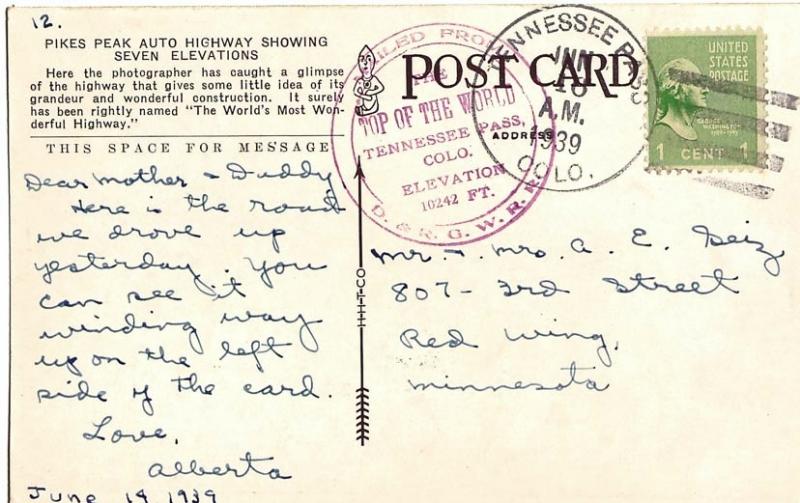 12.
PIKES PEAK AUTO HIGHWAY SHOWING
SEVEN ELEVATIONS
Here the photographer has caught a glimpse
of the highway that gives some little idea of its
grandeur and wonderful construction. It surely
has been rightly named "The World's Most Won-
derful Highway."
THIS SPACE FOR MESSAGE
Dear Mother & Daddy
Here is the road
we drove up
yesterday. You
can see it
winding way
up on the left
side of the card.
Love,
Alberta
June 14 1939
MAILED FROM
THE
TOP OF THE WORLD
TENNESSEE PASS,
COLO.
ELEVATION
10242 FT.
D. & R. G. W. R. R.
POST CARD
ADDRESS
TENNESSEE PASS
JUN
A.M.
1939
COLO.
UNITED
STATES
POSTAGE
GEORGE
WASHINGTON
1 CENT 1
H-H-T-CO
Mr. & Mrs. A. E. Seiz
807-3rd Street
Red Wing,
Minnesota